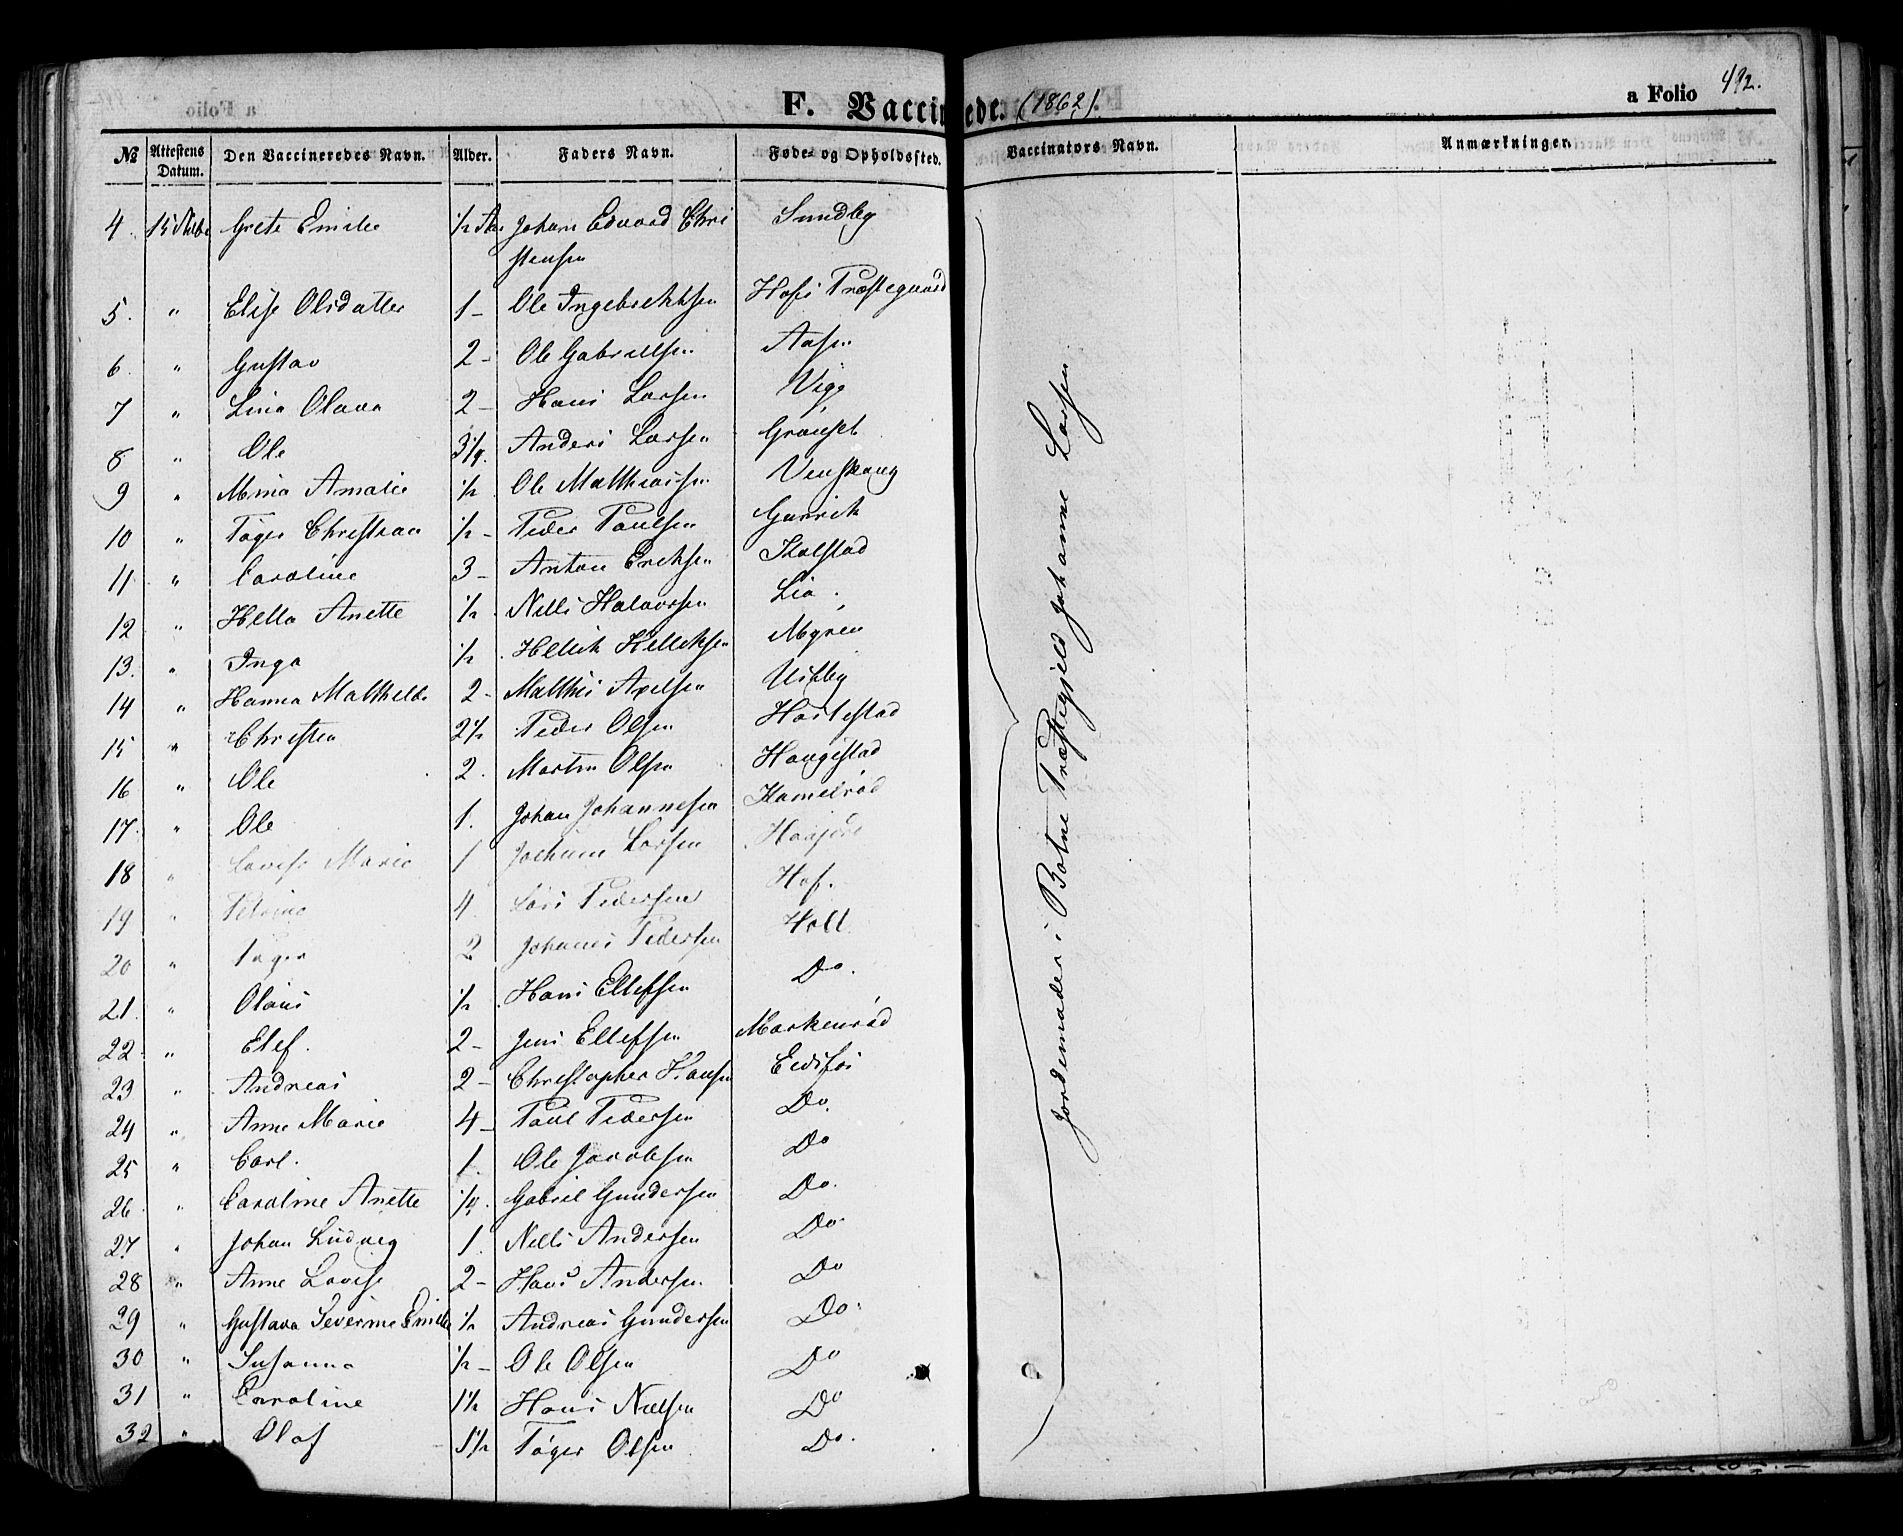 F. Vaccinerede. (1862).
a Folio 492.
№ Attestens Datum. Den Vaccineredes Navn. Alder. Faders Navn. Føde- og Opholdssted. Vaccinators Navn. Anmærkninger.
4. 15 Grete Emilie 1/2 Johan Edvard Chri Sundby
stensen
5. " Elise Olsdatter 1 - Ole Ingebrektsen Hofs Præstegaard
6. " Gustav 2 - Ole Gabrielsen Aasen
7 " Lina Olava 2 - Hans Larsen Vige
8 " Ole 3/4. Anders Larsen Grønset
9 " Mina Amalie 1/2 Ole Matthiassen
10 " Tøger Christian 1/2 - Peder Paulsen
11 " Caroline 3 - Anton Eriksen
12 " Hella Anette 1/2 Nells Halvorsen Lia.
13. " Inga 1/2 Hellik Helliksen Myren
14 " Hanna Mathilde 2 - Matthis Axelsen
15 " Christen 2 1/2 Peder Olsen
16 " Ole 2. Martin Olsen Haugestad
17. " Ole 1. Johan Johannesen
18 " Lovise Marie 1 Jochum Larsen
19 " 4. Lars Pedersen Hof.
20 " 2 Johanes Pedersen Holt
21. " Olaus 1/2 Hans Ellefsen Do.
22. " Elef. 2 - Jens Ellefsen
23 " Andreas 2 - Christopher Hansen Eidsfos
24 " Anne Marie 4 - Paul Pedersen Do.
25 " Carl. 1. Ole Jacobsen Do
26. " Caroline Anette 1/4. Gabriel Gundersen Do.
27 " Johan Ludvig 1. Nells Andersen Do.
28 " Anne Lovise 2 - Hans Andersen Do
29 " Gustava Severine Emilie 1/2 Andreas Gundersen Do.
30 " Susanna 1/2 - Ole Olsen Do
31 " Caroline 1 1/2 Hans Nielsen Do
32 " Olaf 1 1/2 Tøger Olsen Do.
Jordemoder i Botne Præstegjeld Johanne Larsen